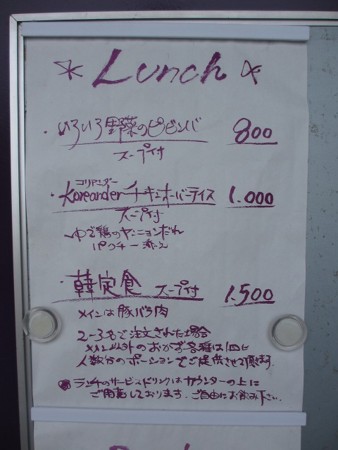 Lunch
・いろいろ野菜のビビンバ 800
スープ付
コリアンダー
・Koreanderチキンオーバーライス 1.000
スープ付
〜ゆで鶏のヤンニョンだれ
パクチー添え〜
・韓定食 スープ付 1.500
メインは豚バラ肉
2〜3名で注文された場合
メイン以外のおかず各種は1皿に
人数分のポーションでご提供させて頂きます。
ランチのサービスドリンクはカウンターの上に
ご用意しております。ご自由にお飲み下さい。